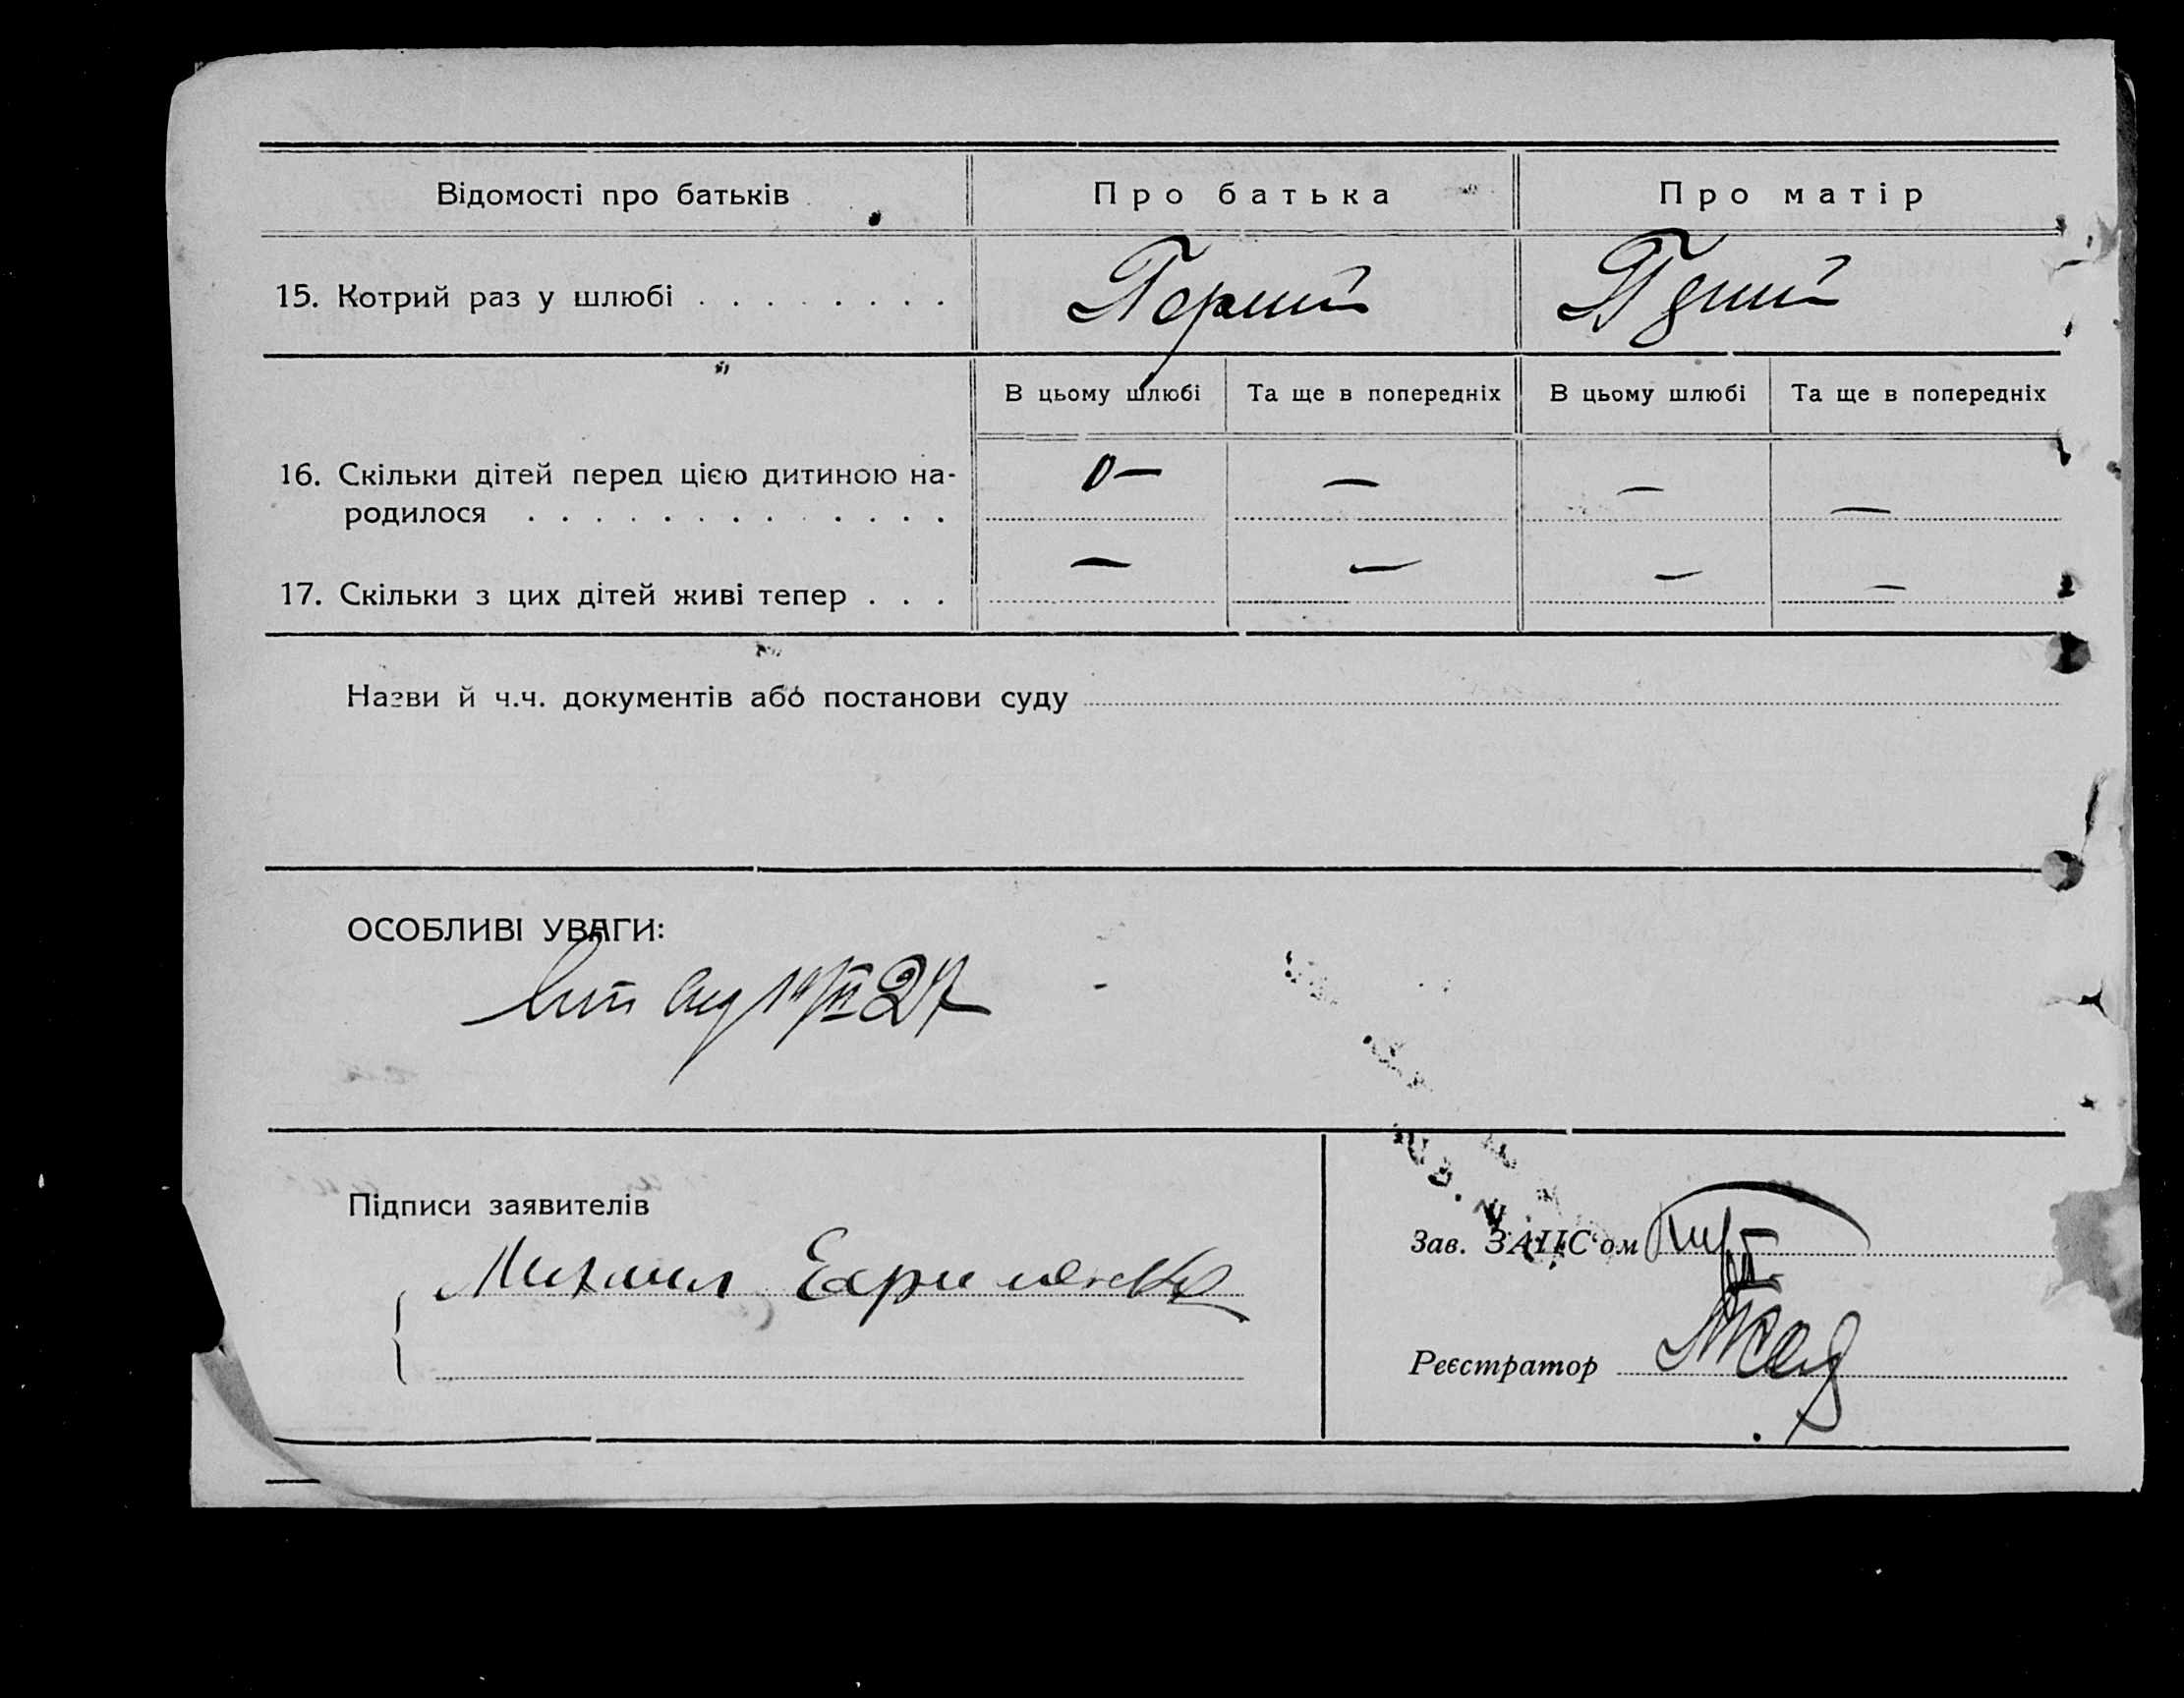 Відомості про батьків
Про батька
Про матір
15. Котрий раз у шлюбі . . . . . . . .
Перший
В цьому шлюбі
Та ще в попередніх
В цьому шлюбі
Та ще в попередніх
16. Скільки дітей перед цією дитиною на-
родилося . . . . . . . . . . . . . .
0 —
—
—
—
17. Скільки з цих дітей живі тепер . . .
—
—
—
—
Назви й ч.ч. документів або постанови суду
ОСОБЛИВІ УВАГИ:
27
Підписи заявителів
Михаил
Зав. ЗАГС‘ом
Реєстратор